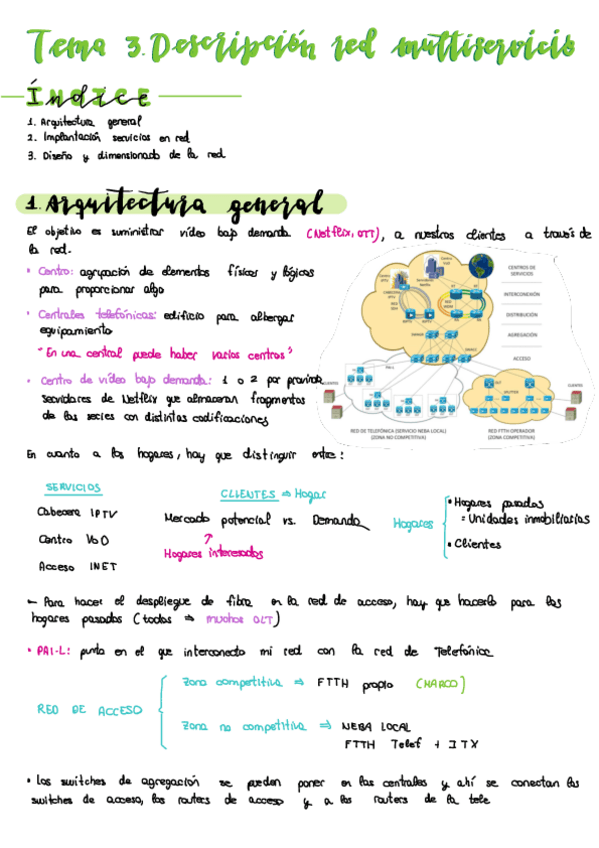 Tema 3. Descripción red multiservicio
Índice
1. Arquitectura general
2. Implantación servicios en red
3. Diseño y dimensionado de la red
1. Arquitectura general
El objetivo es suministrar vídeo bajo demanda (Netflix, OTT), a nuestros clientes a través de
la red.
• Centro: agrupación de elementos físicos y lógicos
para proporcionar algo
• Centrales telefónicas: edificio para albergar
equipamiento
"En una central puede haber varios centros"
• Centro de vídeo bajo demanda: 1 o 2 por provincia,
servidores de Netflix que almacenan fragmentos
de las series con distintas codificaciones
CENTROS DE
SERVICIOS
INTERCONEXIÓN
DISTRIBUCIÓN
AGREGACIÓN
ACCESO
CLIENTES
CLIENTES
RED DE TELEFÓNICA (SERVICIO NEBA LOCAL)
(ZONA NO COMPETITIVA)
RED FTTH OPERADOR
(ZONA COMPETITIVA)
En cuanto a los hogares, hay que distinguir entre:
SERVICIOS
Cabecera IPTV
Centro VoD
Acceso INET
CLIENTES ⇒ Hogar
Mercado potencial vs. Demanda
Hogares interesados
Hogares
• Hogares pasados
= Unidades inmobiliarias
• Clientes
– Para hacer el despliegue de fibra en la red de acceso, hay que hacerlo para los
hogares pasados (todos ⇒ muchos OLT)
• PAI-L: punto en el que interconecto mi red con la red de Telefónica
RED DE ACCESO
Zona competitiva ⇒ FTTH propio (MARCO)
Zona no competitiva ⇒ NEBA LOCAL
FTTH Telef + ITX
• Los switches de agregación se pueden poner en las centrales y ahí se conectan los
switches de acceso, los routers de acceso y a los routers de la tele